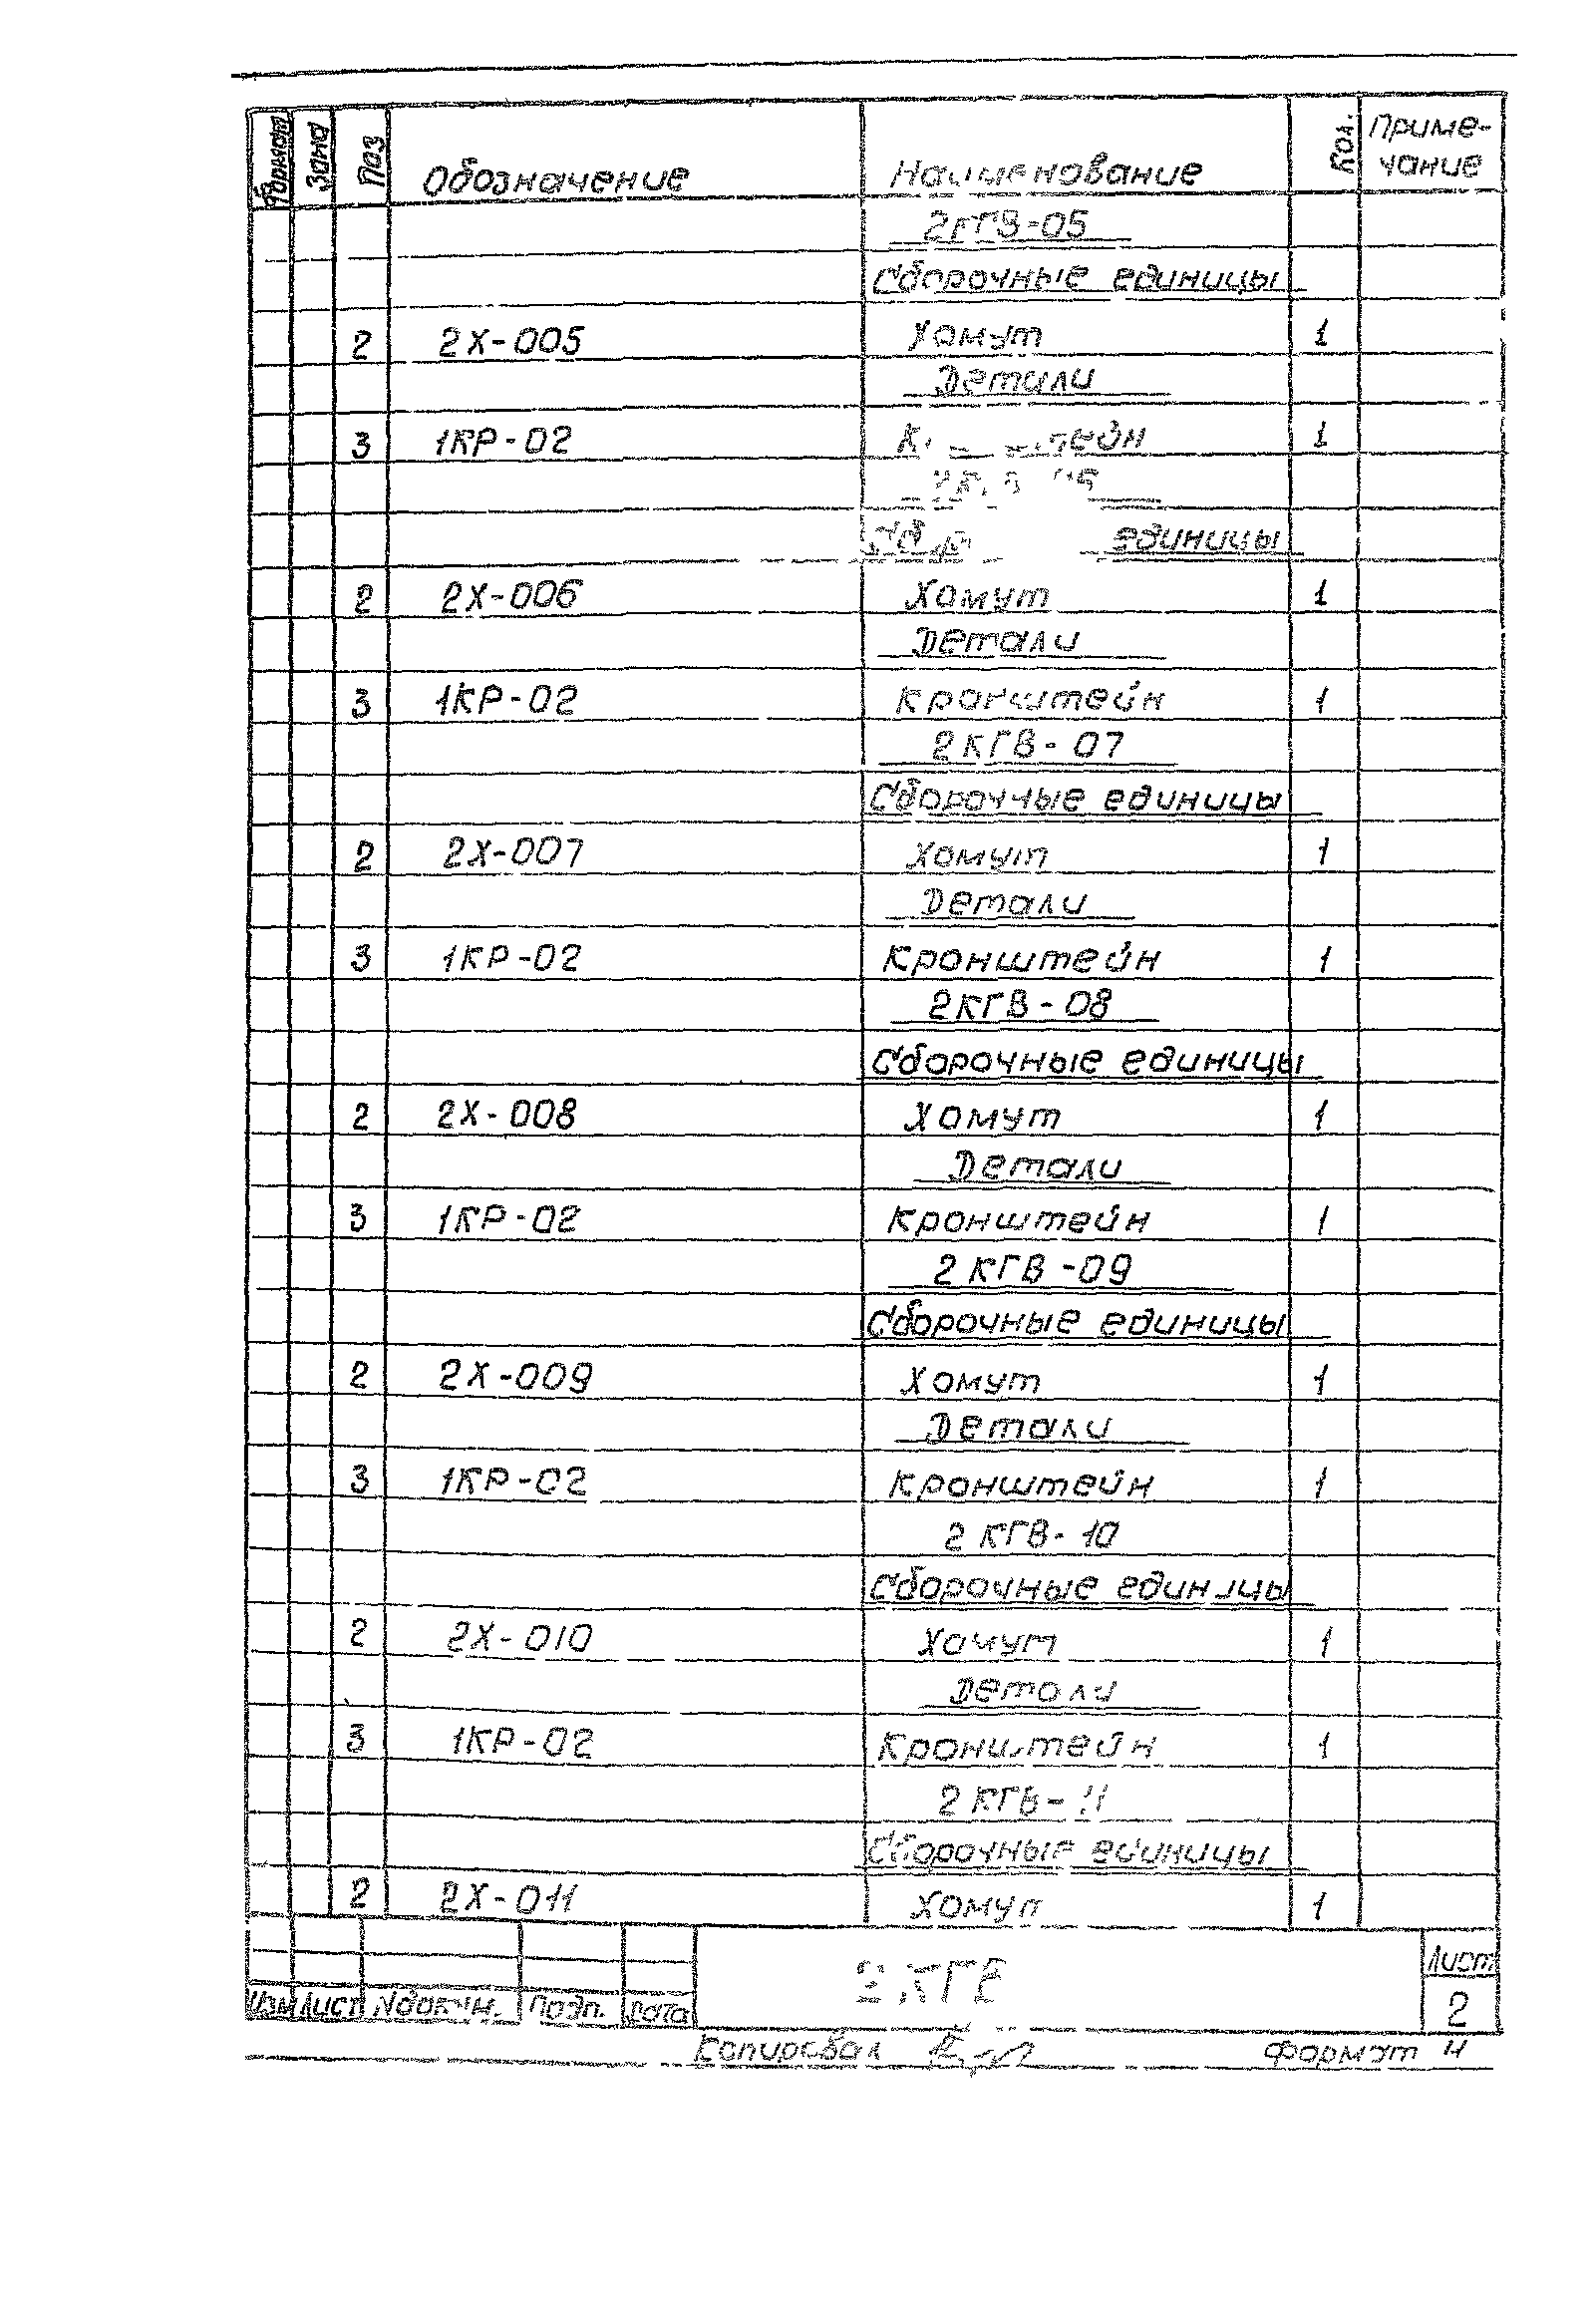 Формат Зона Поз Обозначение Наименование Кол. Приме-
чание
2КГВ-05
Сборочные единицы
2 2Х-005 Хомут 1
Детали
3 1КР-02 1
единицы
2 2Х-006 Хомут 1
Детали
3 1КР-02 Кронштейн 1
2КГВ-07
Сборочные единицы
2 2Х-007 Хомут 1
Детали
3 1КР-02 Кронштейн 1
2КГВ-08
Сборочные единицы
2 2Х-008 Хомут 1
Детали
3 1КР-02 Кронштейн 1
2КГВ-09
Сборочные единицы
2 2Х-009 Хомут 1
Детали
3 1КР-02 Кронштейн 1
2КГВ-10
Сборочные единицы
2 2Х-010 Хомут 1
Детали
3 1КР-02 Кронштейн 1
2КГВ-11
Сборочные единицы
2 2Х-011 Хомут 1
2КГВ
Лист
2
Изм Лист №докум. Подп. Дата
Копировал Формат 4